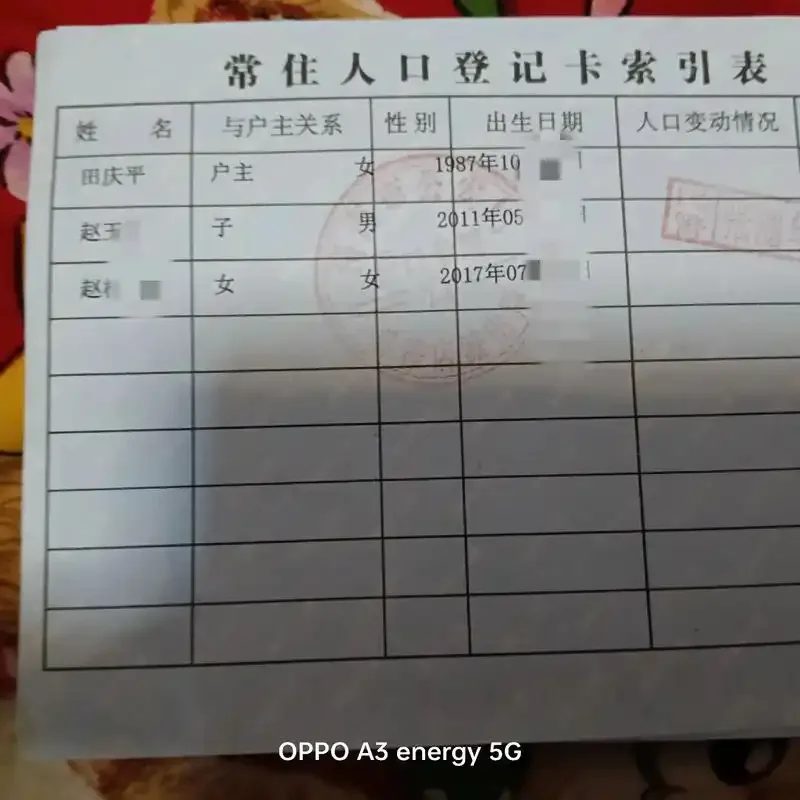 常住人口登记卡索引表
姓 名 与户主关系 性别 出生日期 人口变动情况
田庆平 户主 女 1987年10
赵玉 子 男 2011年05
赵 女 女 2017年07
OPPO A3 energy 5G